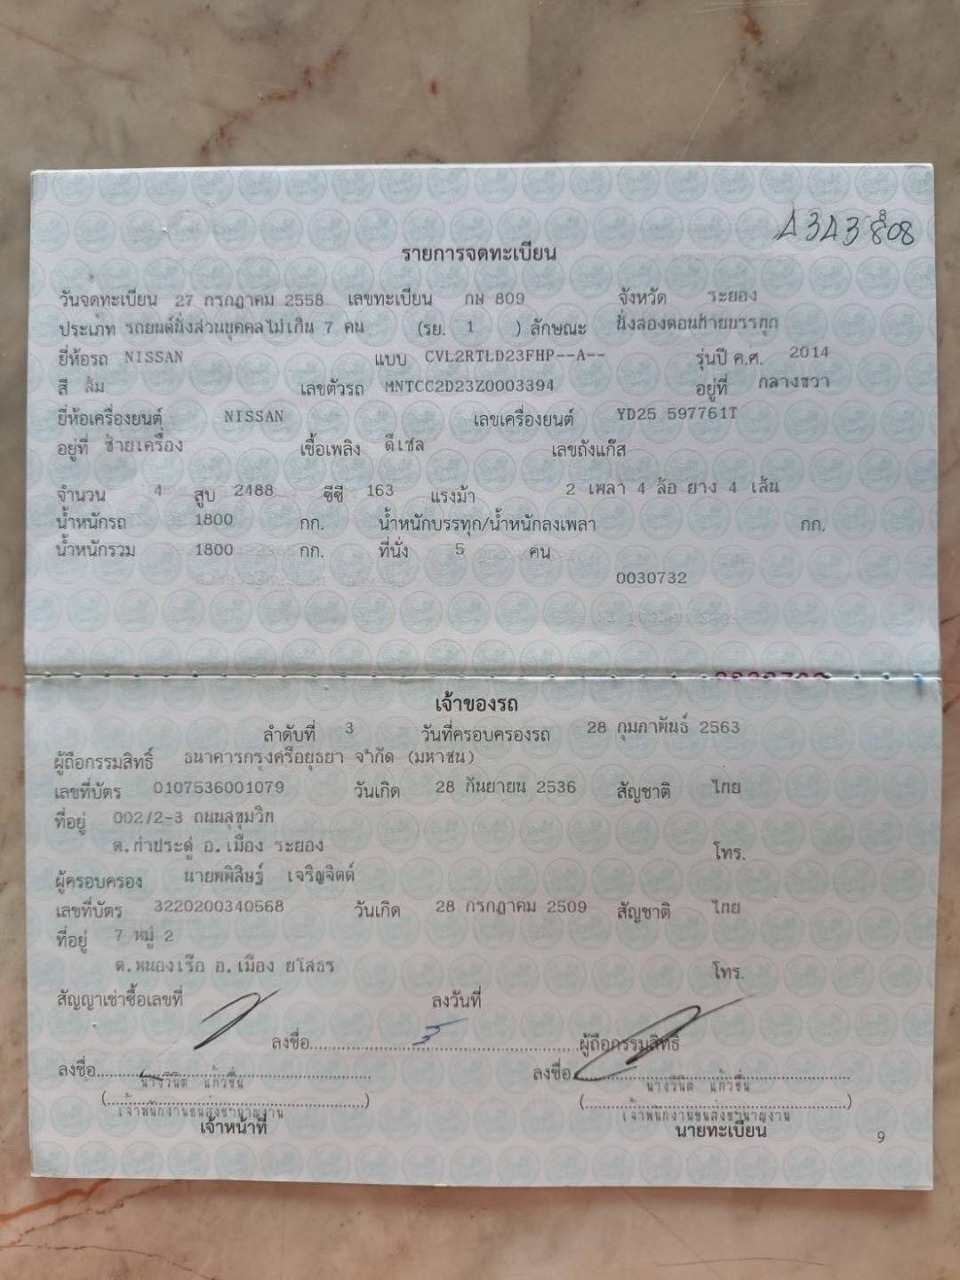 A3A3 808
รายการจดทะเบียน
วันจดทะเบียน 27 กรกฎาคม 2558 เลขทะเบียน กษ 809 จังหวัด ระยอง
ประเภท รถยนต์นั่งส่วนบุคคลไม่เกิน 7 คน (รย. 1 ) ลักษณะ นั่งสองตอนท้ายบรรทุก
ยี่ห้อรถ NISSAN แบบ CVL2RTLD23FHP--A-- รุ่นปี ค.ศ. 2014
สี ส้ม เลขตัวรถ MNTCC2D23Z0003394 อยู่ที่ กลางขวา
ยี่ห้อเครื่องยนต์ NISSAN เลขเครื่องยนต์ YD25 597761T
อยู่ที่ ซ้ายเครื่อง เชื้อเพลิง ดีเซล เลขถังแก๊ส
จำนวน 4 สูบ 2488 ซีซี 163 แรงม้า 2 เพลา 4 ล้อ ยาง 4 เส้น
น้ำหนักรถ 1800 กก. น้ำหนักบรรทุก/น้ำหนักลงเพลา กก.
น้ำหนักรวม 1800 กก. ที่นั่ง 5 คน
0030732
เจ้าของรถ
ลำดับที่ 3 วันที่ครอบครองรถ 28 กุมภาพันธ์ 2563
ผู้ถือกรรมสิทธิ์ ธนาคารกรุงศรีอยุธยา จำกัด (มหาชน)
เลขที่บัตร 0107536001079 วันเกิด 28 กันยายน 2536 สัญชาติ ไทย
ที่อยู่ 002/2-3 ถนนสุขุมวิท
ต.ท่าประดู่ อ.เมือง ระยอง โทร.
ผู้ครอบครอง นายพพิสิษฐ์ เจริญจิตต์
เลขที่บัตร 3220200340568 วันเกิด 28 กรกฎาคม 2509 สัญชาติ ไทย
ที่อยู่ 7 หมู่ 2
ต.หนองเรือ อ.เมือง ยโสธร โทร.
สัญญาเช่าซื้อเลขที่ ลงวันที่
ลงชื่อ ผู้ถือกรรมสิทธิ์
ลงชื่อ ลงชื่อ
นางวินิต แก้วชื่น นางวินิต แก้วชื่น
เจ้าพนักงานขนส่งชำนาญงาน เจ้าพนักงานขนส่งชำนาญงาน
เจ้าหน้าที่ นายทะเบียน
9